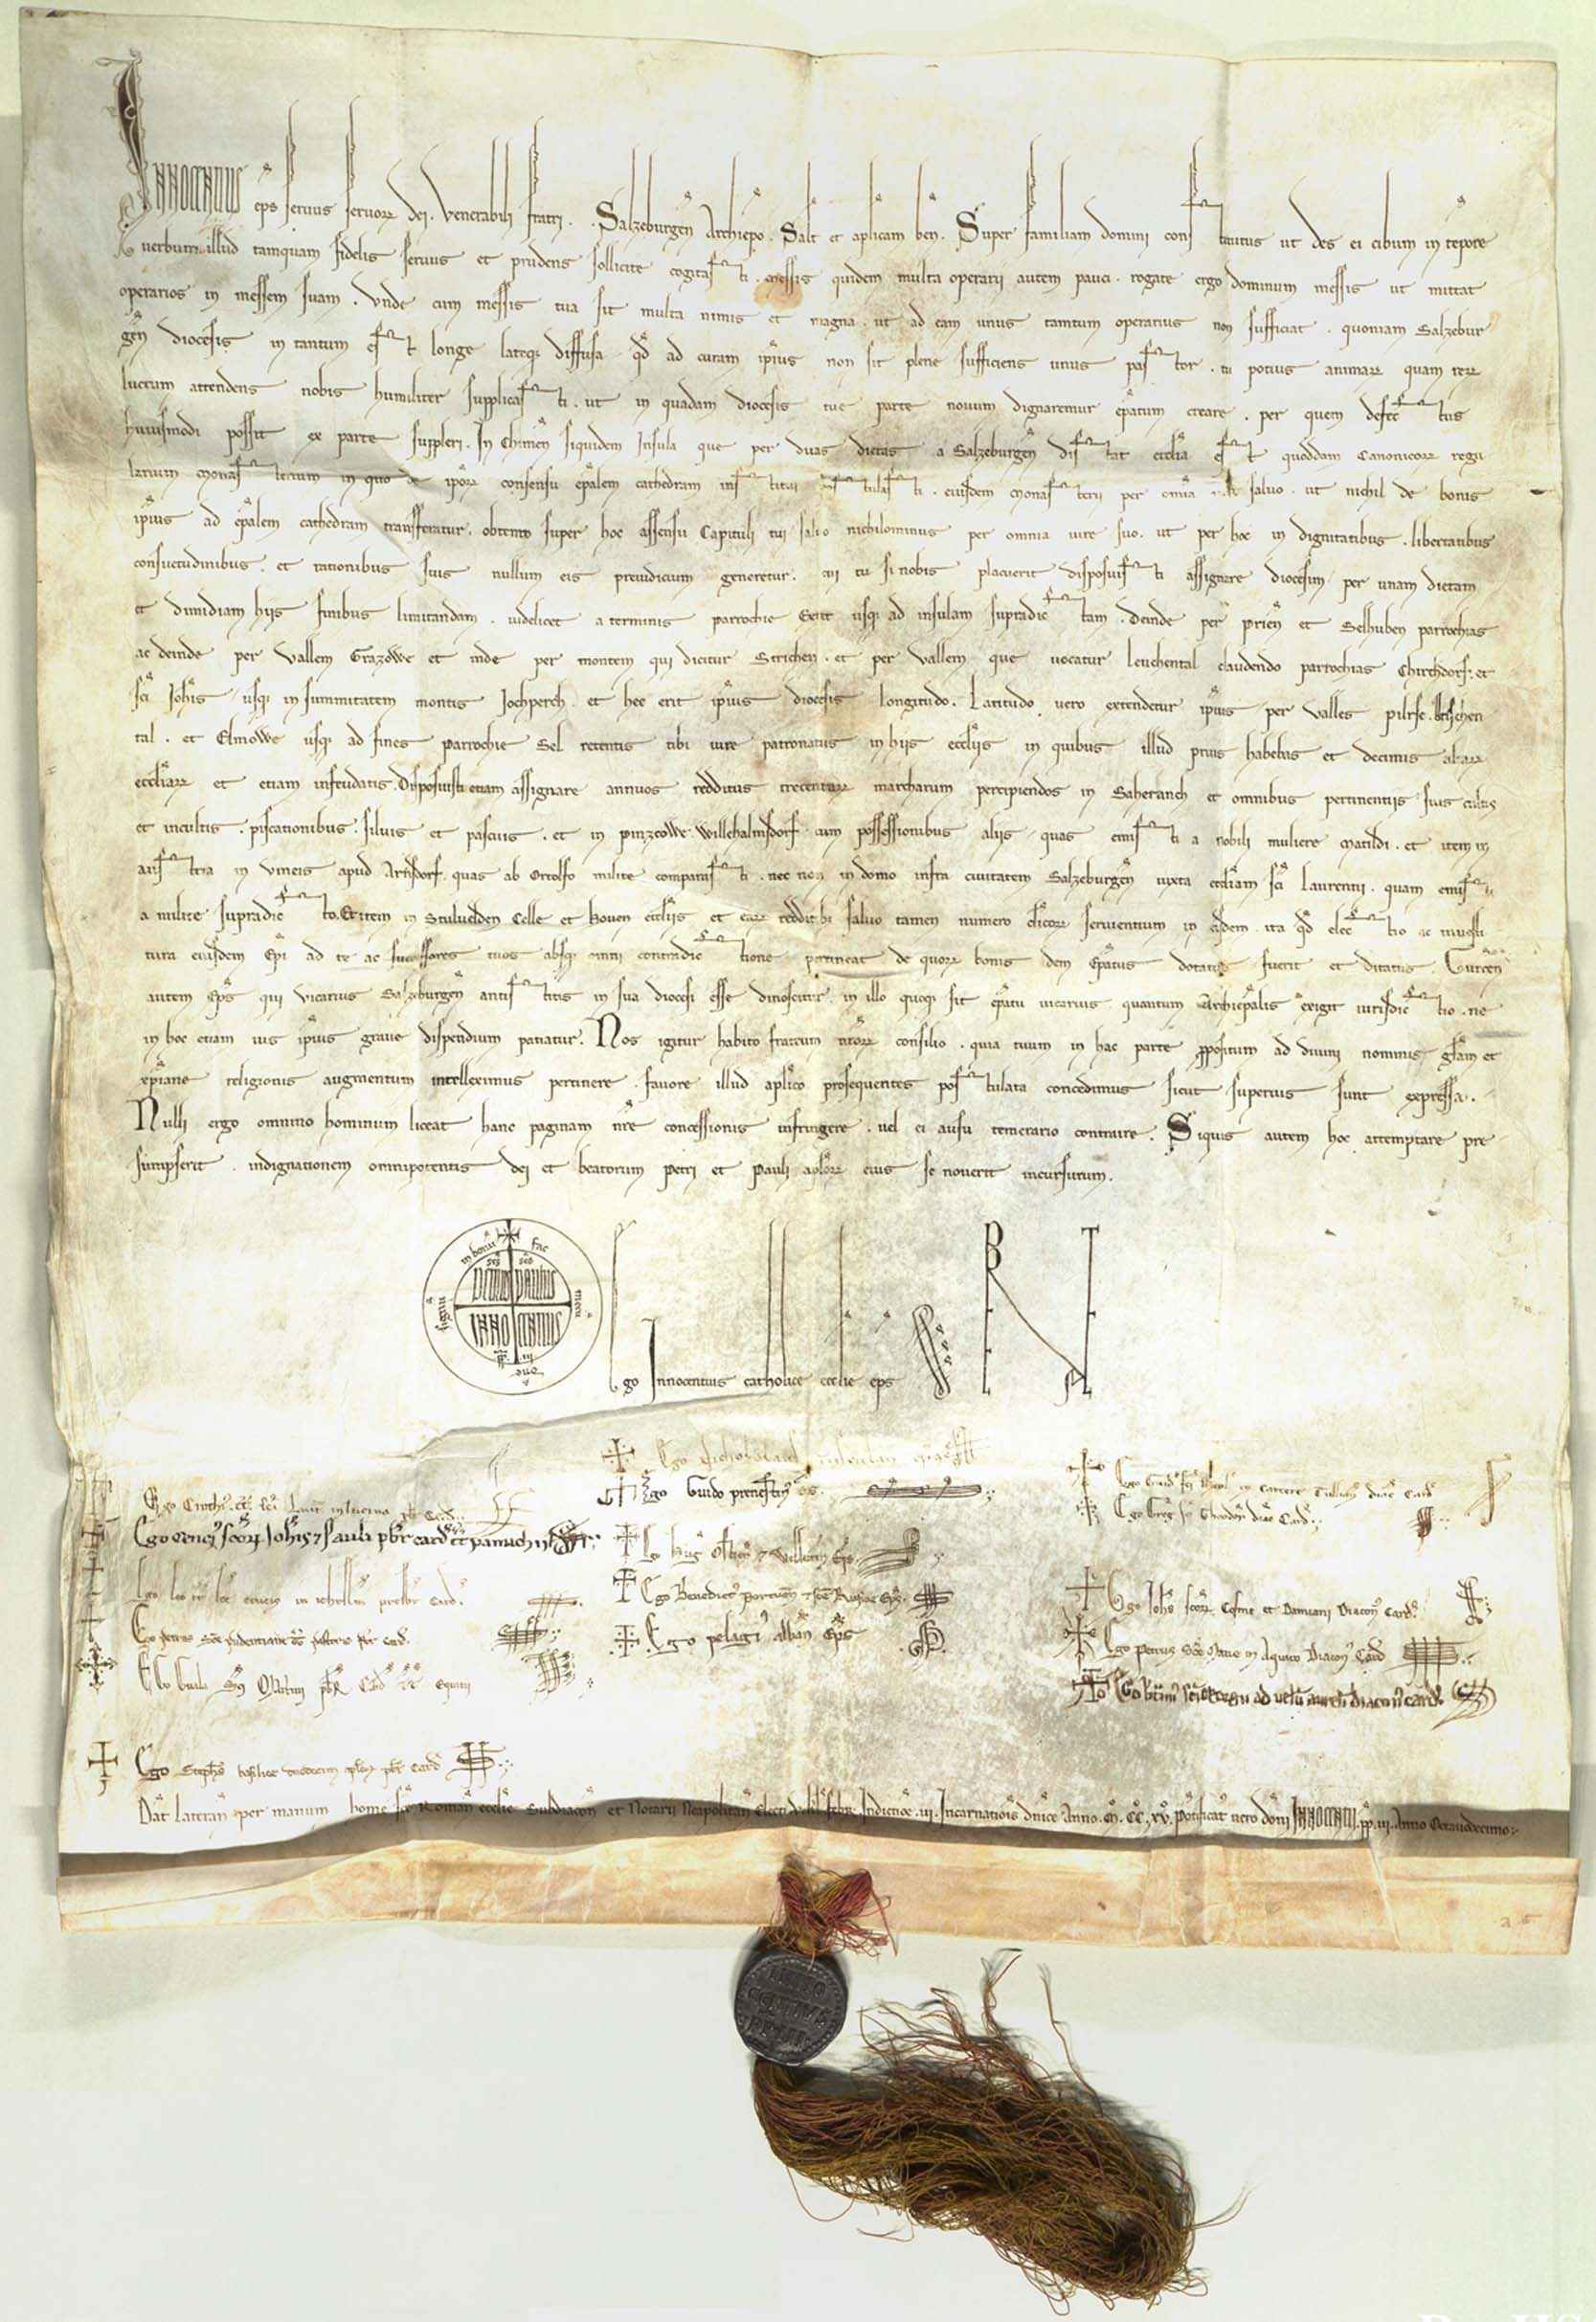 INNOCENTIUS ep̄s seruus seruoꝝ dei. Venerabili fratri . . Salzeburgen̄ Archiep̄o. Salt̄ et ap̄licam ben̄. Super familiam domini constitutus ut des ei cibum in tēpore
uerbum illud tamquam fidelis seruus et prudens sollicite cogitasti. messis quidem multa operarii autem pauci. rogate ergo dominum messis ut mittat
operarios in messem suam. Vnde cum messis tua sit multa nimis et magna. ut ad eam unus tantum operarius non sufficiat. quoniam Salzebur
gen̄ diocesis in tantum est longe lateqꝫ diffusa qd̄ ad curam ip̄ius non sit plene sufficiens unus pastor. tu potius animaꝝ quam reꝝ
lucrum attendens nobis humiliter supplicasti. ut in quadam diocesis tue parte nouum dignaremur ep̄atum creare. per quem defectus
huiusmodi possit ex parte suppleri. In Chimen̄ siquidem Insula que per duas dietas a Salzeburgen̄ distat eccl̄ia est quoddam Canonicoꝝ regu
larium monasterium in quo de ip̄oꝝ consensu ep̄alem cathedram institui postulasti. eiusdem monasterii per omīa iure saluo. ut nichil de bonis
ip̄ius ad ep̄alem cathedram transferatur. obtento super hoc assensu Capituli tui saluo nichilominus per omnia iure suo. ut per hoc in dignitatibus. libertatibus
consuetudinibus. et rationibus suis nullum eis preiudicium generetur. cui tu si nobis placuerit disposuisti assignare diocesim per unam dietam
et dimidiam hiis finibus limitandam. uidelicet a terminis parrochie Gerit usqꝫ ad insulam supradictam. deinde per prien̄ et Selhuben parrochias
ac deinde per vallem Grazowe et inde per montem qui dicitur Strichen. et per vallem que uocatur leuchental claudendo parrochias Chirchdorf. et
sc̄i Joh̄is usqꝫ in summitatem montis Jochperch. et hec erit ip̄ius diocesis longitudo. Latitudo uero extendetur ip̄ius per valles pilrse.
tal. et Elmowe usqꝫ ad fines parrochie Sel retentis tibi iure patronatus in hiis eccl̄iis in quibus illud prius habebas et decimis aliaꝝ
eccl̄iaꝝ et etiam infeudatis. Disposuisti etiam assignare annuos redditus trecentaꝝ marcharum percipiendos in Saheranch et omnibus pertinentiis suis cultis
et incultis. piscationibus. siluis et pascuis. et in pinzcowe Willehalmsdorf cum possessionibus aliis quas emisti a nobili muliere Matildi. et item in
austria in vineis apud Arnsdorf. quas ab Ortolfo milite comparasti. nec non in domo infra ciuitatem Salzeburgen̄ iuxta eccl̄iam sc̄i laurentii. quam emisti
a milite supradicto. Et item in Stuluelden Celle et Houen eccl̄iis et eaꝝ redditibꝫ saluo tamen numero cl̄icoꝝ seruientium in eisdem. ita qd̄ electio ac inuesti
tura eiusdem Ep̄i ad te ac successores tuos absqꝫ omni contradictione pertineat de quoꝝ bonis idem Ep̄atus dotatus fuerit et ditatus. Gurcen̄
autem Ep̄s qui vicarius Salzeburgen̄ antistitis in sua diocesi esse dinoscitur. in illo quoqꝫ sit ep̄atu uicarius quantum Archiep̄alis exigit iurisdictio. ne
in hoc etiam ius ip̄ius graue dispendium patiatur. Nos igitur habito fratrum nr̄oꝝ consilio. quia tuum in hac parte ꝓpositum ad diuini nominis gl̄am et
xp̄iane religionis augmentum intelleximus pertinere. fauore illud ap̄lico prosequentes postulata concedimus sicut superius sunt expressa.
Nulli ergo omnino hominum liceat hanc paginam nr̄e concessionis infringere. uel ei ausu temerario contraire. Siquis autem hoc attemptare pre
sumpserit. indignationem omnipotentis dei et beatorum Petri et Pauli ap̄loꝝ eius se nouerit incursurum.
fac mecū dn̄e signū in bonū
sc̄s PETRUS sc̄s PAULUS
INNOCENTIUS pp̄ III
Ego Innocentius catholice eccl̄ie ep̄s
Ego Guido prenestin̄ ep̄s
Ego Huḡ Ostien̄ ⁊ velletren̄ Ep̄s
Ego Benedictꝰ portuen̄ ⁊ sc̄e Rufine Ep̄s
Ego pelagiꝰ alban̄ Ep̄s
Ego cenciꝰ sc̄oꝝ Joh̄is ⁊ Pauli pbr̄ card̄ tt̄ pamachii
Ego leo tt̄ sc̄e crucis in ierl̄m presbr̄ card̄.
Ego petrus Sc̄e pudentiane tt̄ pastoris pbr̄ card̄.
Ego Guala Sc̄i Martini pbr̄ Card̄ tt̄ equitii
Ego Steph̄s basilice duodecim ap̄loꝝ pbr̄ card̄
Ego Guid̄ sc̄i Nicol̄ in carcere Tullian̄ diac̄ card̄
Ego Greḡ sc̄i Theodori diac̄ Card̄.
Ego Joh̄s sc̄oꝝ Cosme et Damiani Diacon̄ card̄.
Ego Petrus Sc̄e Marie in Aquiro Diacon̄ Card̄
Ego btinꝰ sc̄i Georgii ad uelū aureū diaconꝰ card̄.
Dat̄ lateran̄ per manum Thome sc̄e Roman̄ eccl̄ie Subdiacon̄ et Notarii Neapolitan̄ Electi v kl̄ febr̄. Indictioē .iii. Incarnatiōis dn̄ice Anno .M̄. CC̄. xv̄. Pōtificat̄ uero dōni INNOCENTII .pp̄. iii. Anno Octauodecimo
INNO
CENTIVS
PP III